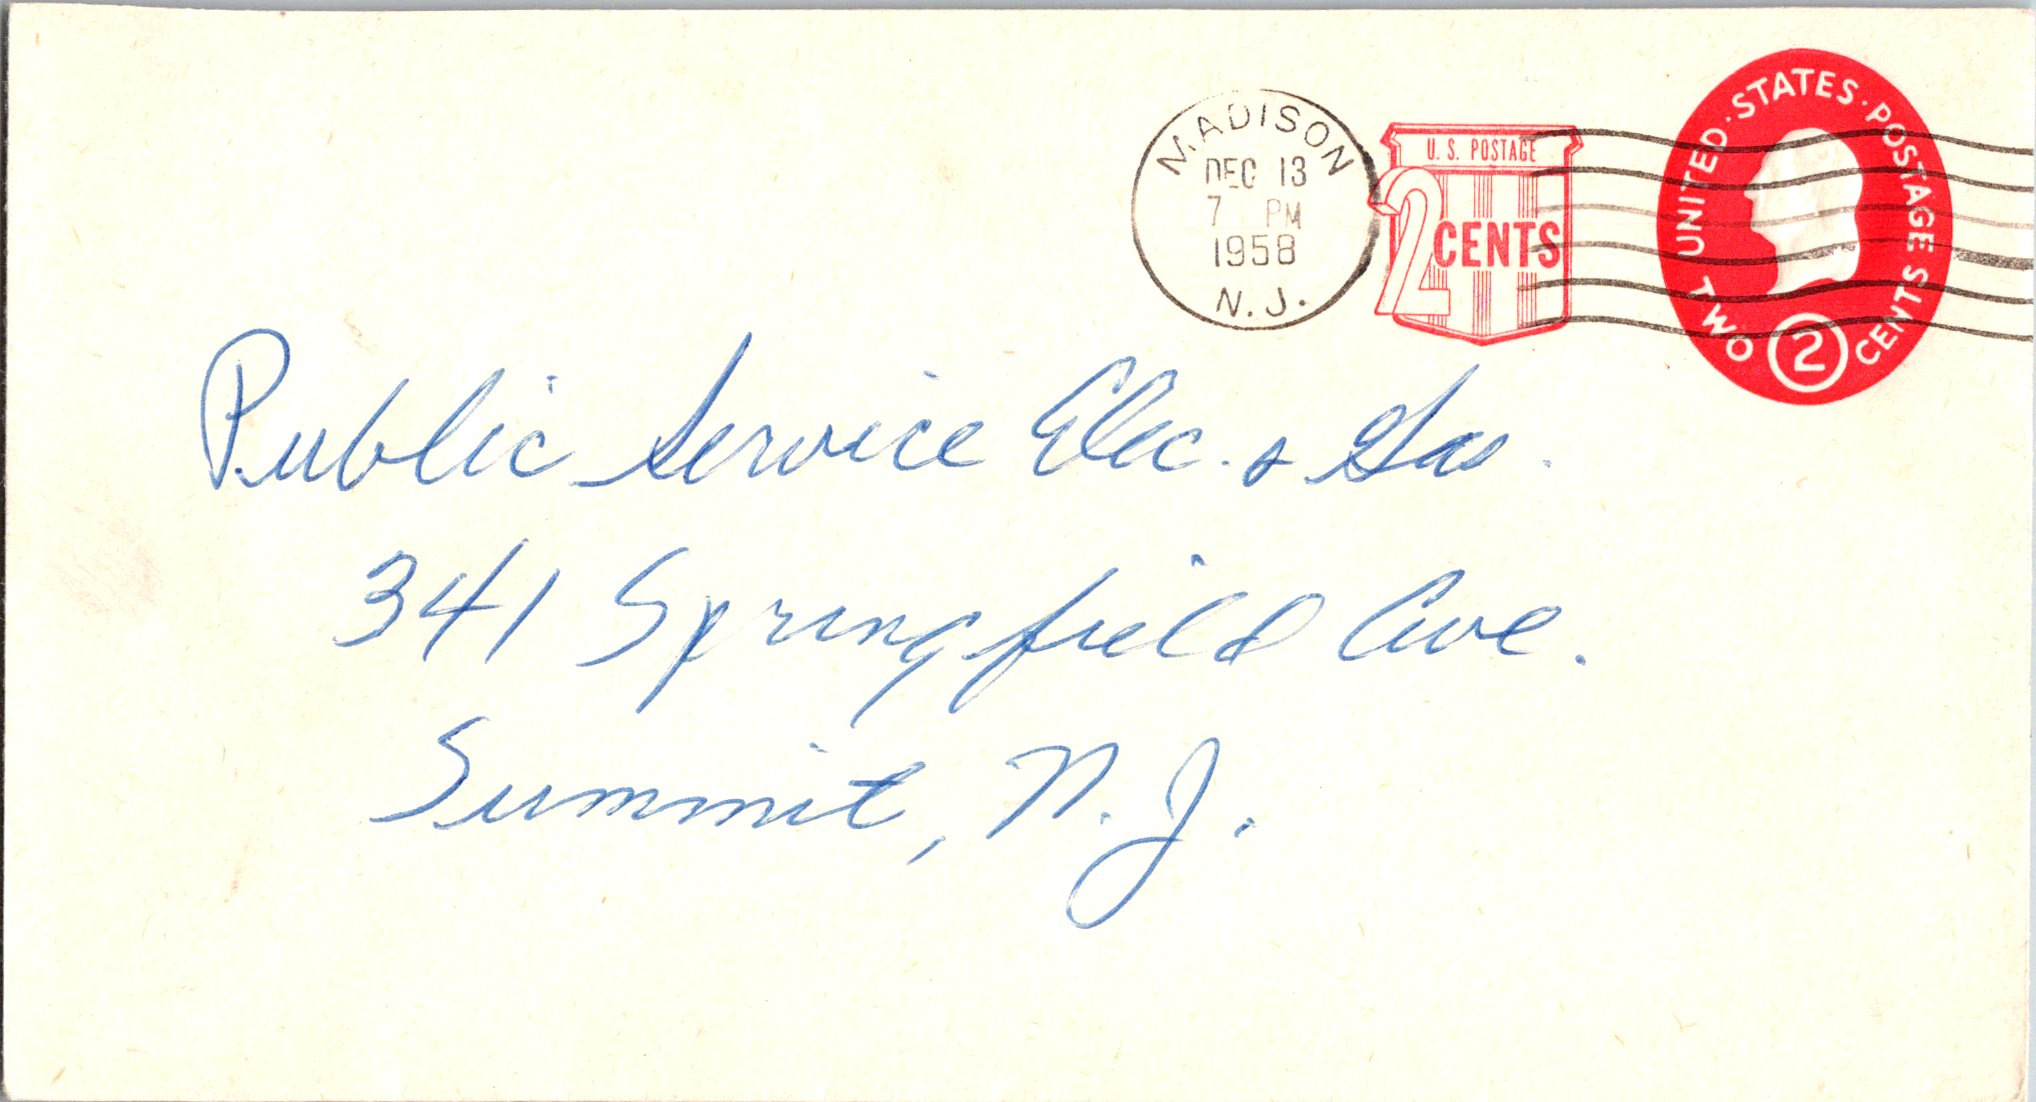 MADISON
DEC 13
7 PM
1958
N. J.
U. S. POSTAGE
2 CENTS
UNITED · STATES · POSTAGE
TWO 2 CENTS
Public Service Elec. & Gas.
341 Springfield Ave.
Summit, N. J.